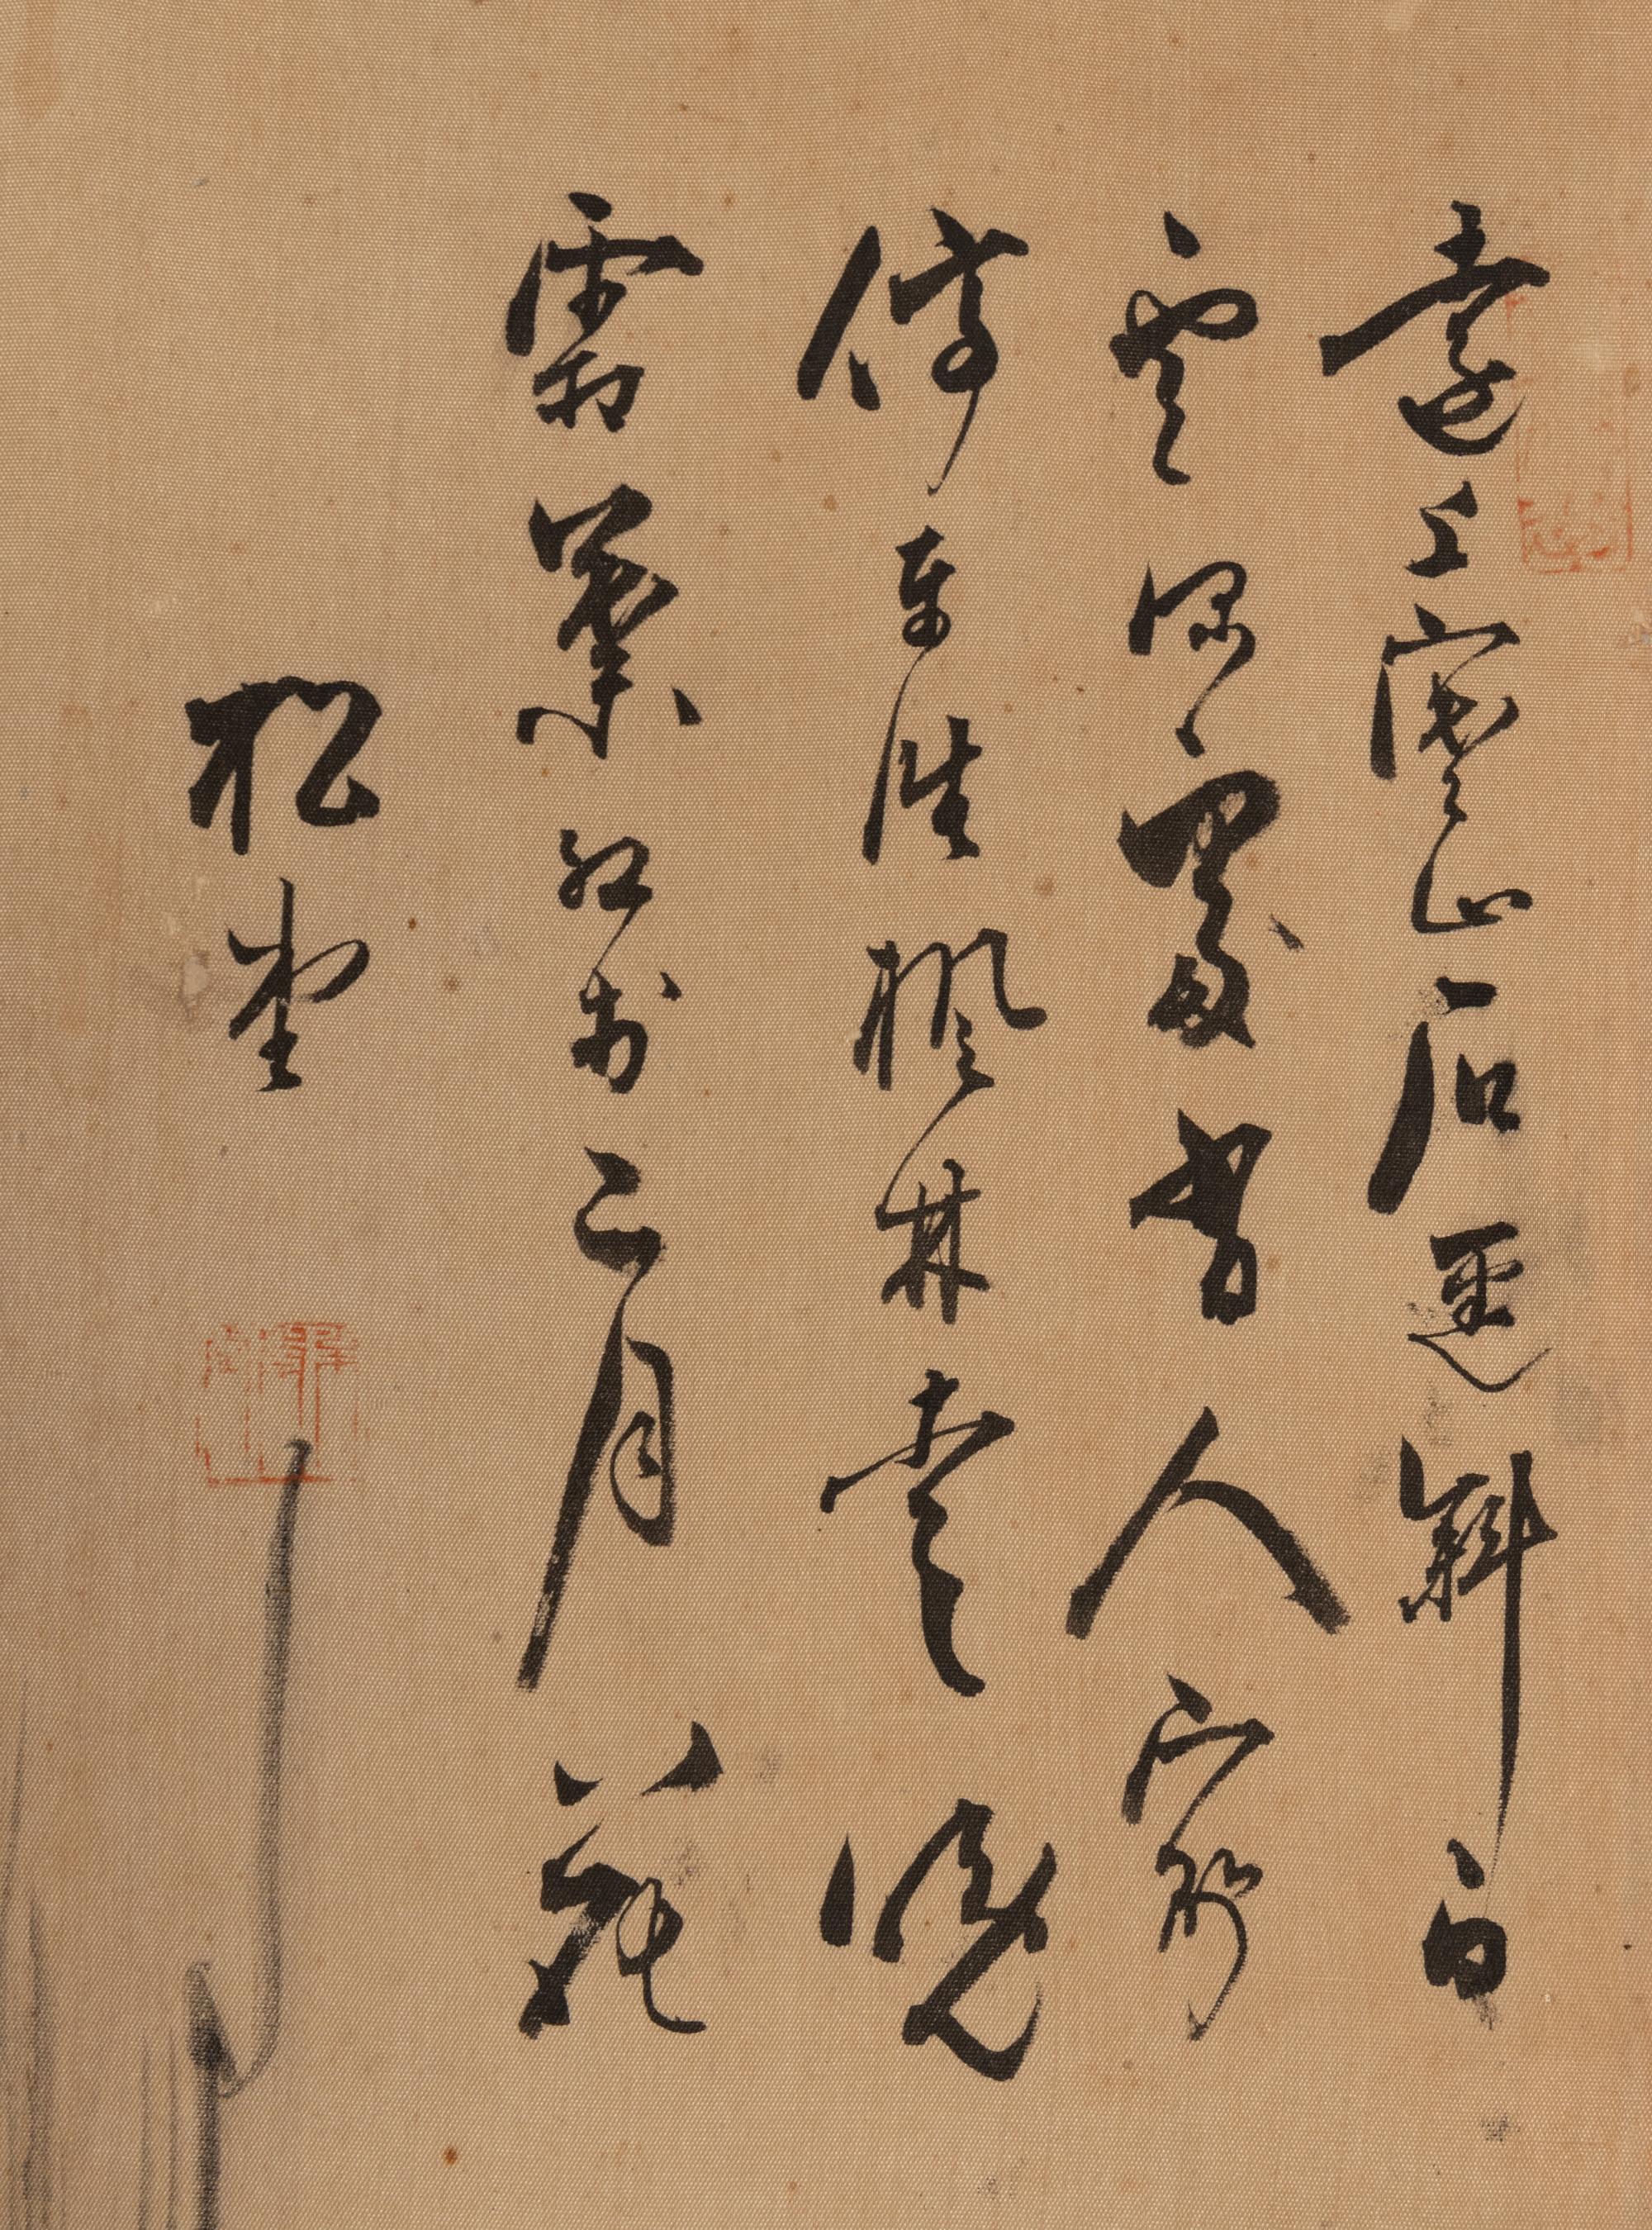 遠上寒山石逕斜白
雲深處有人家
停車坐楓林愛晚
霜葉紅於二月花
松堂